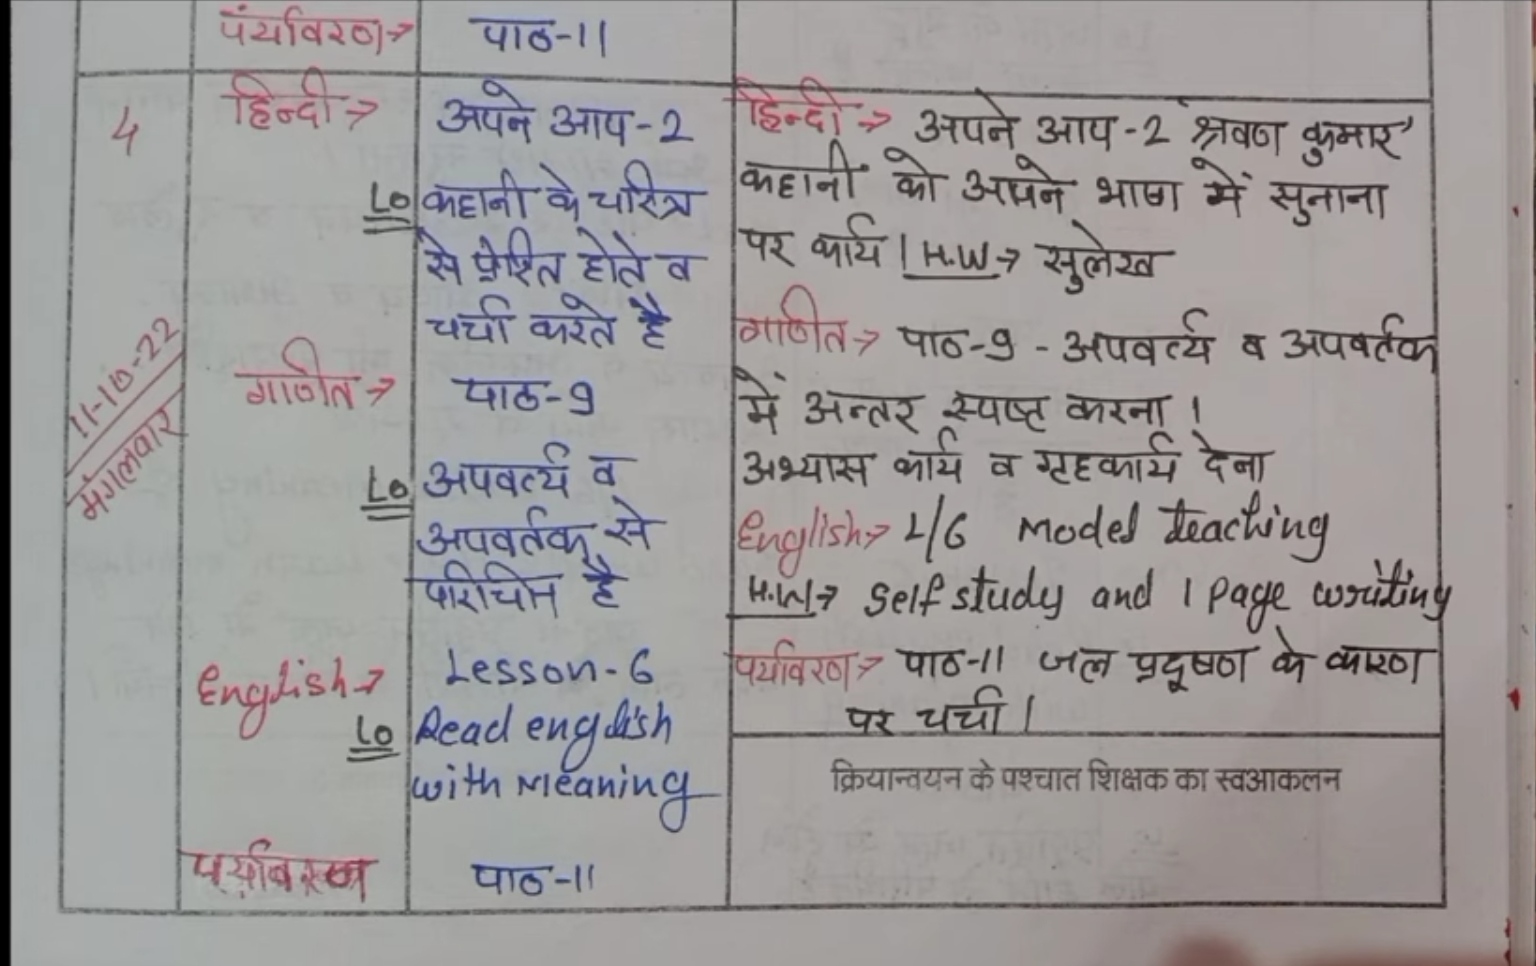 पर्यावरण→ पाठ-11
4
11-10-22
मंगलवार
हिन्दी→ अपने आप-2
LO कहानी के चरित्र
से प्रेरित होते व
चर्चा करते है
गणित→ पाठ-9
LO अपवर्त्य व
अपवर्तक से
परिचित है
English→ Lesson-6
LO Read english
with Meaning
पर्यावरण पाठ-11
हिन्दी→ अपने आप-2 श्रवण कुमार'
कहानी को अपने भाषा में सुनाना
पर कार्य। H.W→ सुलेख
गणित→ पाठ-9 - अपवर्त्य व अपवर्तक
में अन्तर स्पष्ट करना।
अभ्यास कार्य व गृहकार्य देना
English→ L/6 Model teaching
H.W→ Self study and 1 Page writing
पर्यावरण→ पाठ-11 जल प्रदूषण के कारण
पर चर्चा।
क्रियान्वयन के पश्चात शिक्षक का स्वआकलन